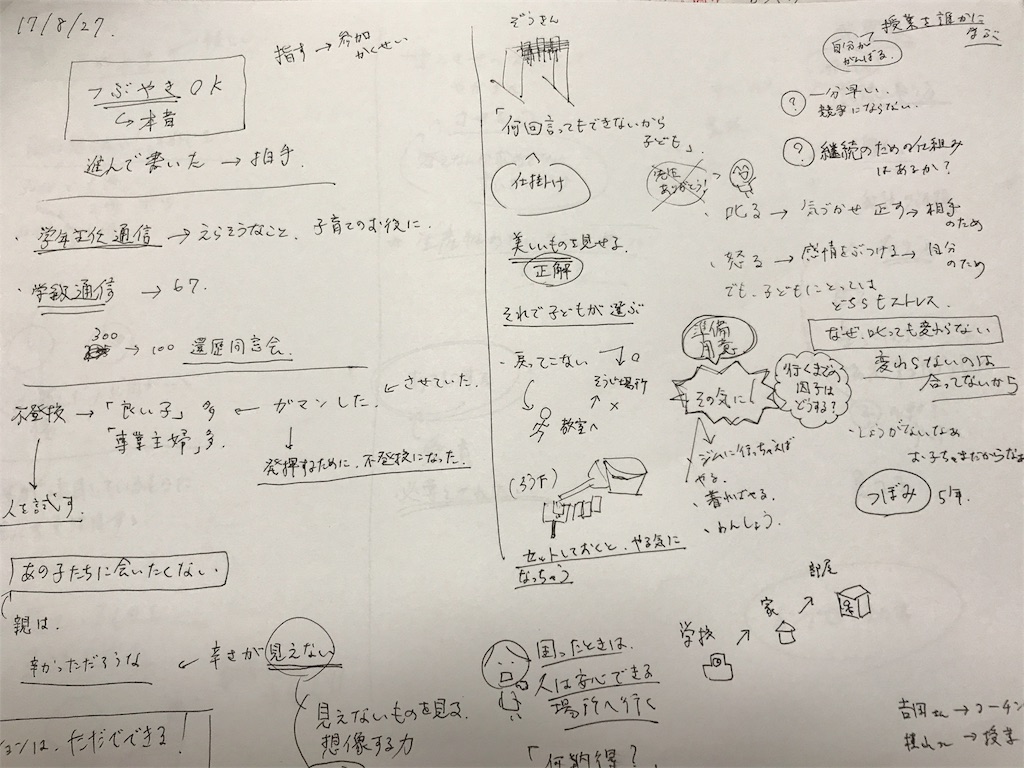 17/8/27.
指す→参加
かくせい
つぶやき OK
↳本音
進んで書いた → 拍手.
・学年主任通信 → えらそうなこと、子育てのお役に.
・学級通信 → 67.
300
→ 100 還暦同窓会.
不登校 → 「良い子」多 ← ガマンした. ← させていた.
「専業主婦」多.
発揮するために、不登校になった.
人を試す.
あの子たちに会いたくない.
親は.
辛かっただろうな ← 辛さが見えない
見えないものを見る.
想像する力
ションは、ただでできる!
ぞうきん
「何回言ってもできないから
子ども」.
へ
仕掛け
美しいものを見せる.
正解
それで子どもが選ぶ
・戻ってこない
そうじ場所
↗ ×
教室へ
(ろう下)
セットしておくと、やる気に
なっちゃう
困ったときは、
人は安心できる
場所へ行く
「何納得?
授業を誰かに
まなぶ
自分が
がんばる.
? 一分早い..
競争にならない.
? 継続のための仕組み
はあるか?
先生
ありがとう!
・叱る → 気づかせ 正す → 相手
のため
・怒る → 感情をぶつける → 自分
のため
でも、子どもにとっては
どちらもストレス.
なぜ、叱っても変わらない
変わらないのは
合ってないから
準備
用意
その気に!
行くまでの
因子は
どうする?
・ジムに行っちゃえば
やる.
・着ればやる.
・わんしょう.
・しょうがないなぁ
お子ちゃまだからなぁ
つぼみ 5年.
学校 ↗ 家 ↗ 部屋
吉田さん → コーチン
横山さん → 授業